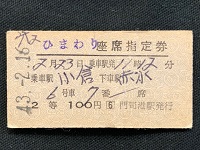 43.-2.16
ひまわり 座席指定券
2月23日 乗車駅発11時 分
乗車駅 小倉 下車駅
6号車 7番 席
2等 100円 6 門司港駅発行